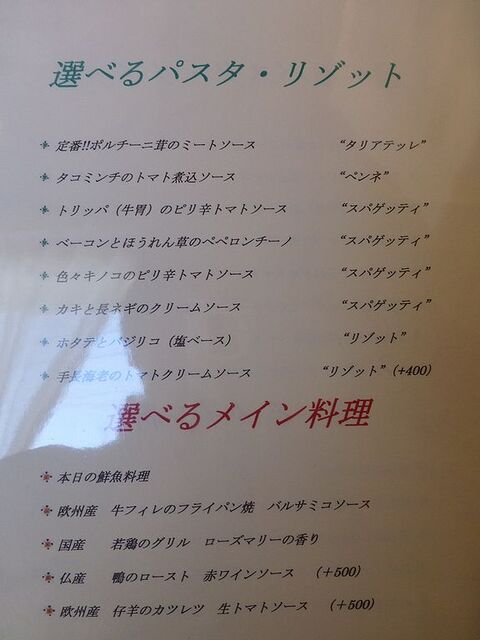 選べるパスタ・リゾット
定番!!ポルチーニ茸のミートソース “タリアテッレ”
タコミンチのトマト煮込ソース “ペンネ”
トリッパ（牛胃）のピリ辛トマトソース “スパゲッティ”
ベーコンとほうれん草のペペロンチーノ “スパゲッティ”
色々キノコのピリ辛トマトソース “スパゲッティ”
カキと長ネギのクリームソース “スパゲッティ”
ホタテとバジリコ（塩ベース） “リゾット”
手長海老のトマトクリームソース “リゾット”（+400）
選べるメイン料理
本日の鮮魚料理
欧州産 牛フィレのフライパン焼 バルサミコソース
国産 若鶏のグリル ローズマリーの香り
仏産 鴨のロースト 赤ワインソース （＋500）
欧州産 仔羊のカツレツ 生トマトソース （＋500）